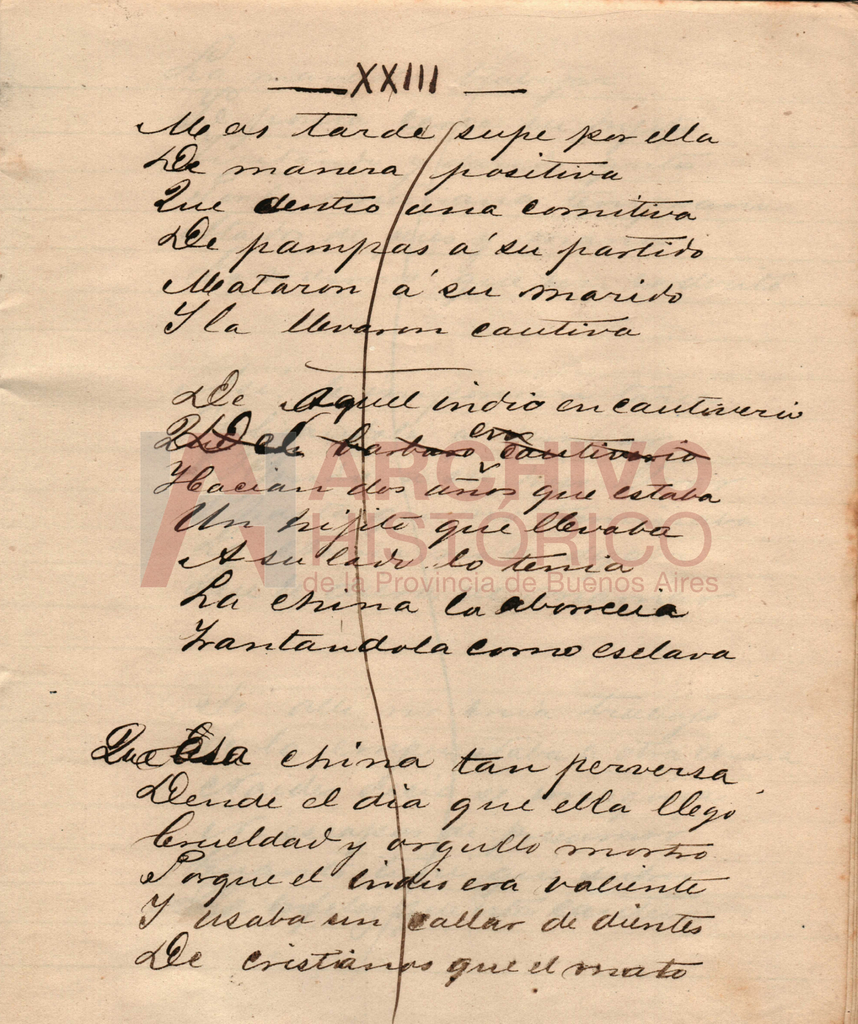 XXIII
Mas tarde supe por ella
De manera positiva
Que dentro una comitiva
De pampas á su partido
Mataron á su marido
Y la llevaron cautiva
De Aquel indio en cautiverio
Del barbaro era cautiverio
Hacian dos años que estaba
Un hijito que llevaba
A su lado lo tenia
La china la aborrecia
Trantandola como esclava
Que Esa china tan perversa
Dende el dia que ella llegó
Crueldad y orgullo mostro
Porque el indio era valiente
Y usaba un collar de dientes
De cristianos que el mato
ARCHIVO
HISTÓRICO
de la Provincia de Buenos Aires